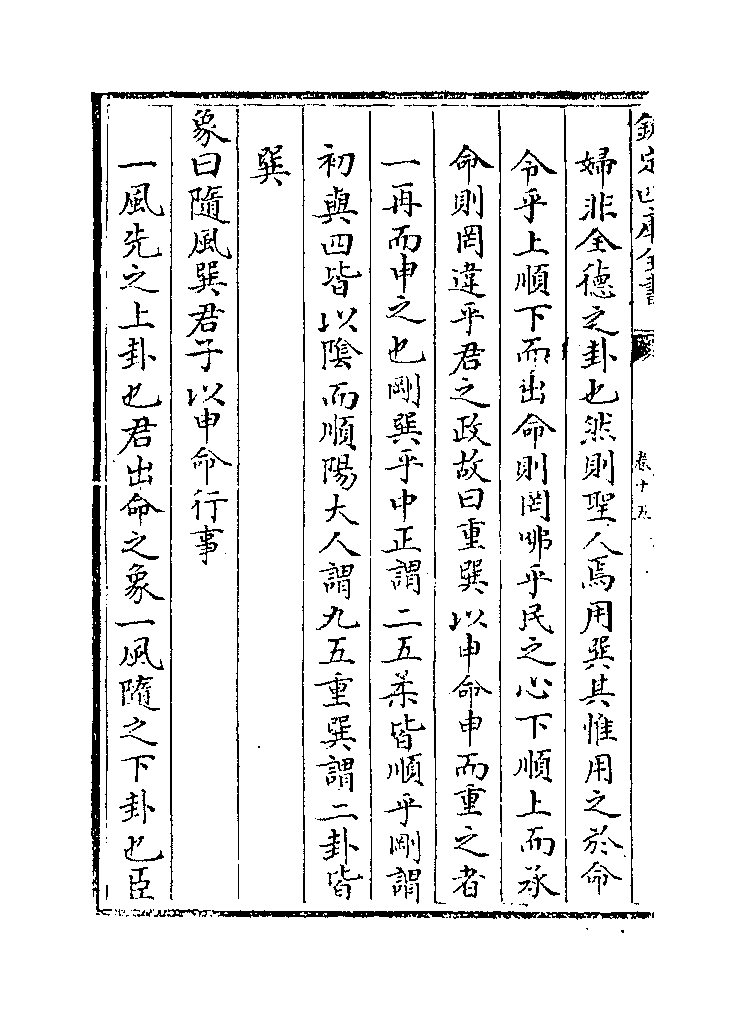 欽定四庫全書
卷十五
婦非全德之卦也然則聖人焉用巽其惟用之於命
令乎上順下而出命則罔咈乎民之心下順上而承
命則罔違乎君之政故曰重巽以申命申而重之者
一再而申之也剛巽乎中正謂二五柔皆順乎剛謂
初與四皆以陰而順陽大人謂九五重巽謂二卦皆
巽
象曰隨風巽君子以申命行事
一風先之上卦也君出命之象一風隨之下卦也臣